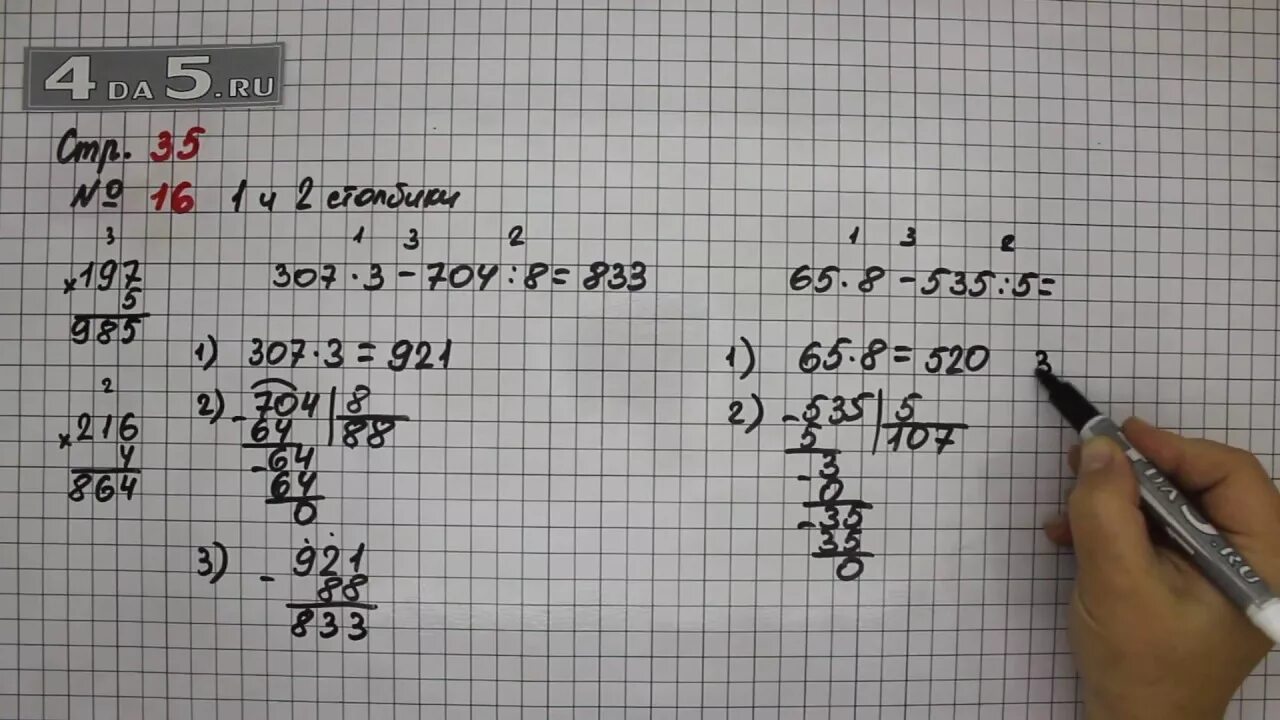 4 DA 5.RU
Стр. 35
№ 16 1 и 2 столбики
3
× 197
5
985
2
× 216
4
864
1 3 2
307 · 3 - 704 : 8 = 833
1) 307 · 3 = 921
2) - 704 | 8
64 88
- 64
64
0
3) - 921
88
833
1 3 2
65 · 8 - 535 : 5 =
1) 65 · 8 = 520
2) - 535 | 5
5 107
- 3
0
- 35
35
0
3
DA 5.RU